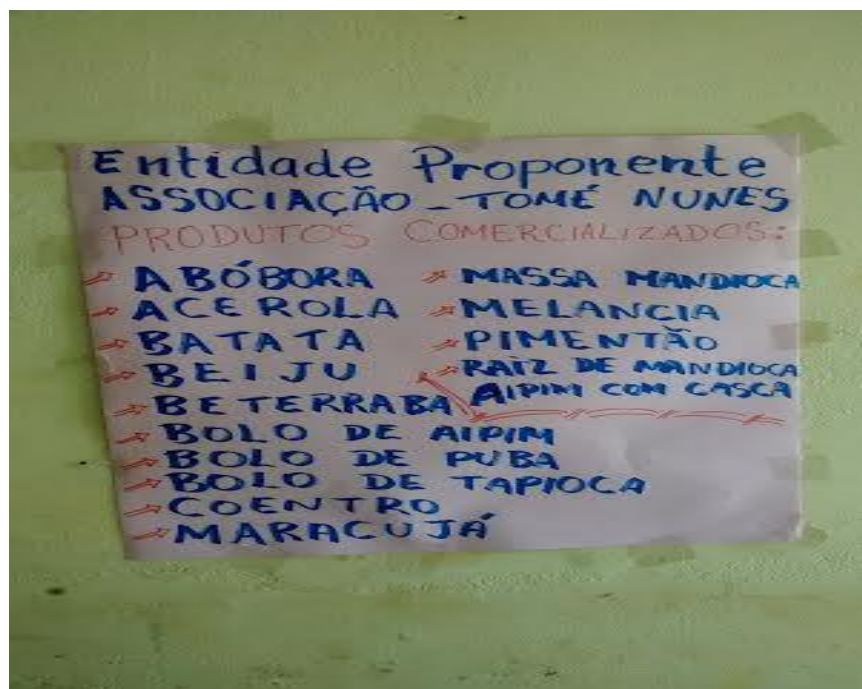 Entidade Proponente
ASSOCIAÇÃO - TOMÉ NUNES
PRODUTOS COMERCIALIZADOS:
ABÓBORA
ACEROLA
BATATA
BEIJU
BETERRABA
BOLO DE AIPIM
BOLO DE PUBA
BOLO DE TAPIOCA
COENTRO
MARACUJÁ
MASSA MANDIOCA
MELANCIA
PIMENTÃO
RAIZ DE MANDIOCA
AIPIM COM CASCA